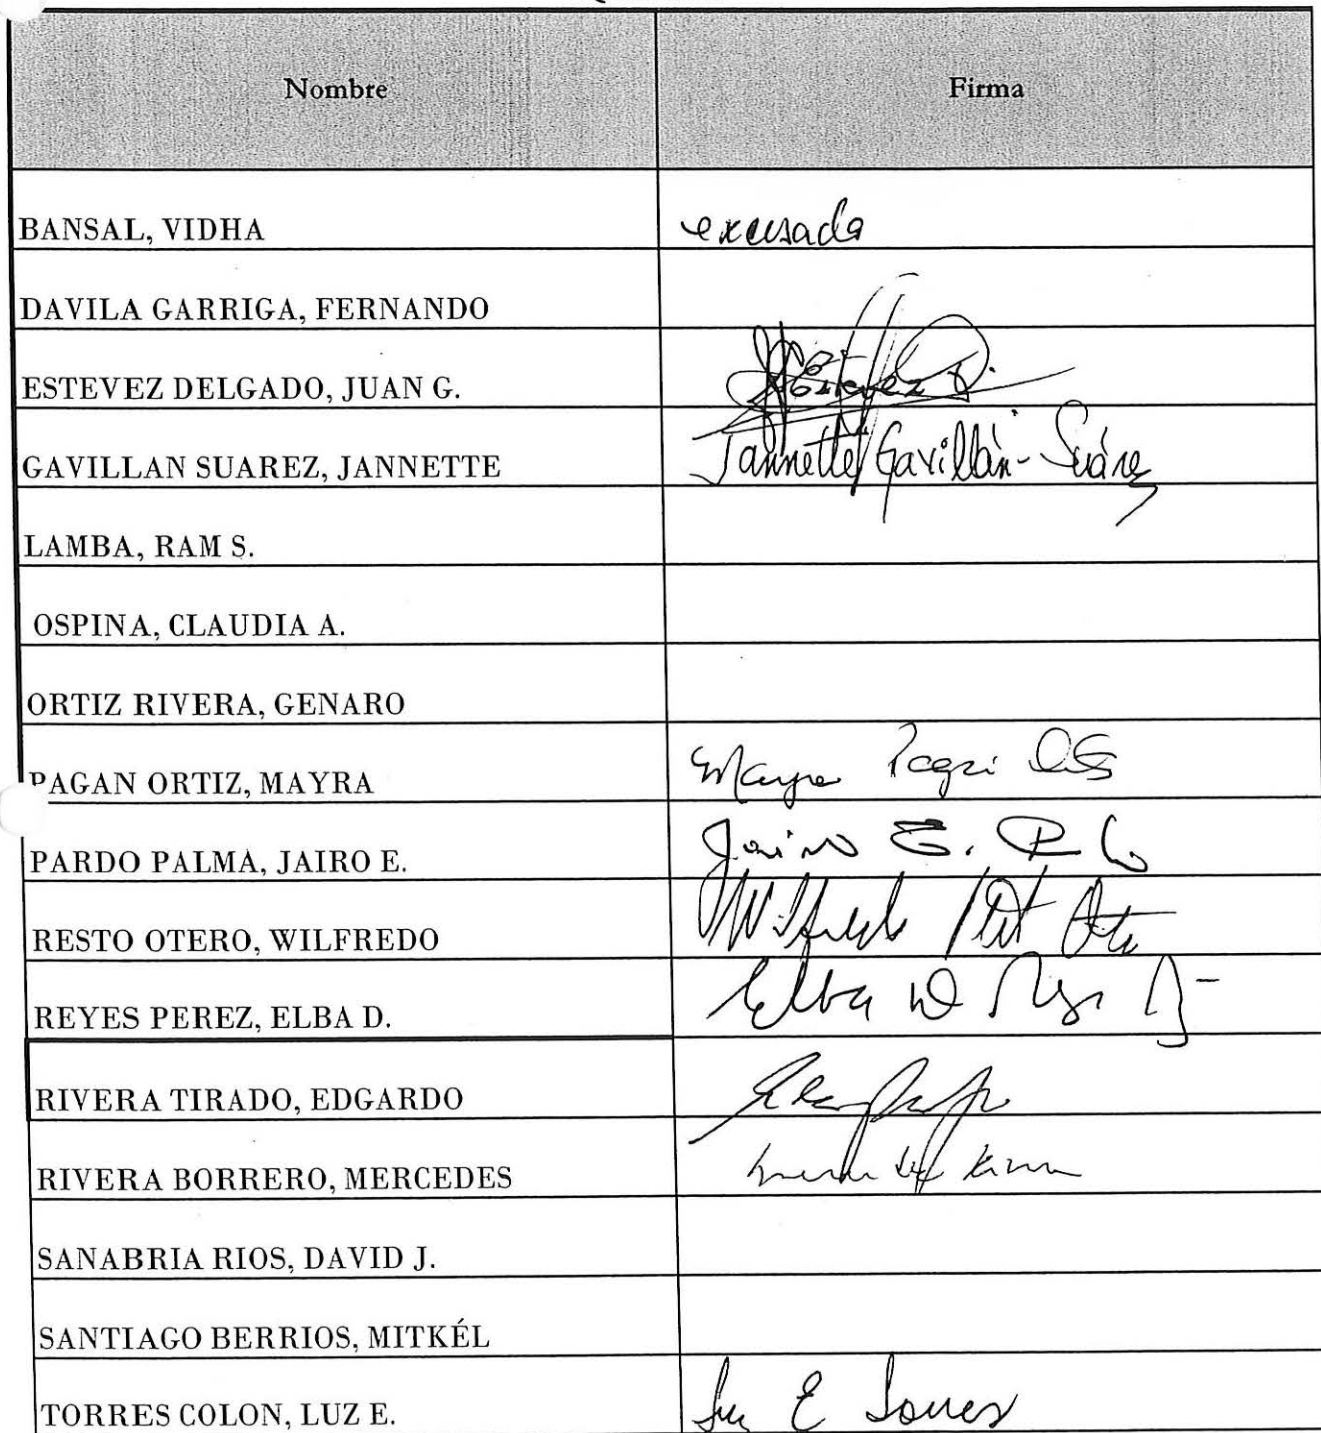 Nombre Firma
BANSAL, VIDHA excusada
DAVILA GARRIGA, FERNANDO
ESTEVEZ DELGADO, JUAN G. Estevez D.
GAVILLAN SUAREZ, JANNETTE Jannette Gavillán-Suárez
LAMBA, RAM S.
OSPINA, CLAUDIA A.
ORTIZ RIVERA, GENARO
PAGAN ORTIZ, MAYRA Mayra
PARDO PALMA, JAIRO E. Jairo E.
RESTO OTERO, WILFREDO Wilfredo
REYES PEREZ, ELBA D. Elba D
RIVERA TIRADO, EDGARDO
RIVERA BORRERO, MERCEDES
SANABRIA RIOS, DAVID J.
SANTIAGO BERRIOS, MITKÉL
TORRES COLON, LUZ E. Luz E Torres